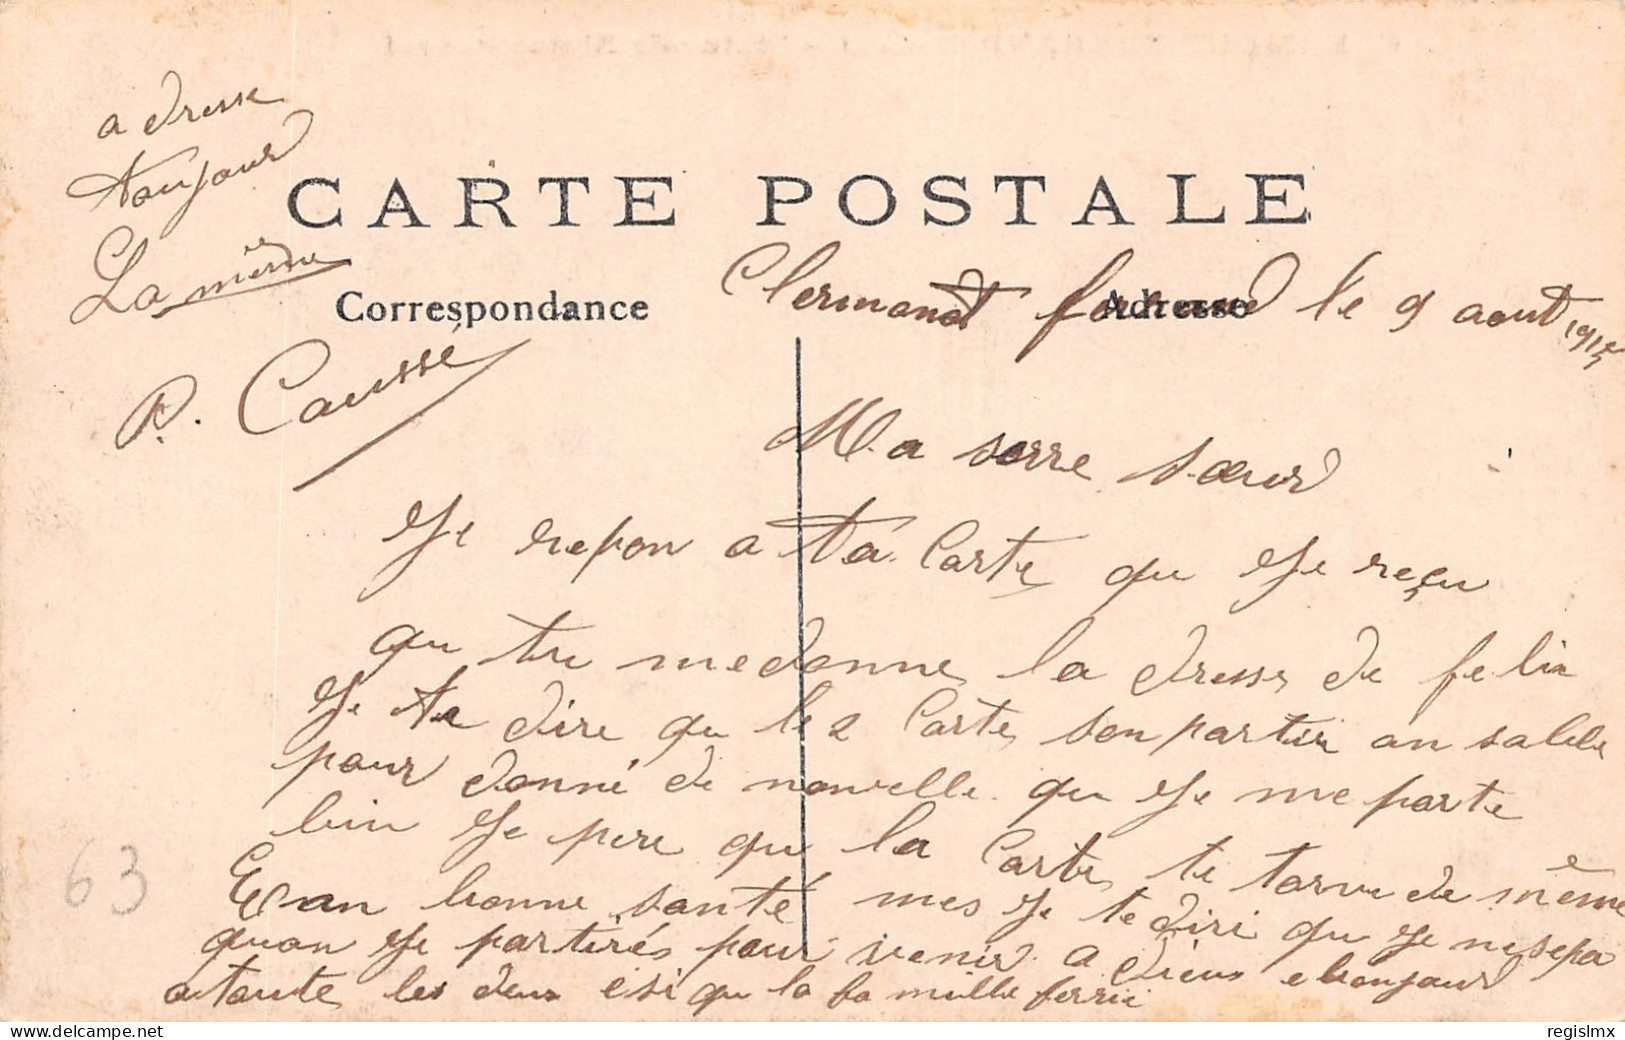 a dresse
toujour
La même
P. Causse
CARTE POSTALE
Correspondance
Adresse
Clermont le 9 aout 1915
Ma serre sœur
Je repon a ta Carte que Je reçu
que tu me donne la dresse de felin
Je te dire que le 2 Carte son partir an
pour donné de nouvelle que Je me parte
bien Je pere que la Carte te torve de même
En an bonne santé mes Je te diri que Je ne se pa
quon Je partirés pour venir a dieus e bonjour
a toute les deus esi que la famille ferrie
63
regislmx
delcampe.net